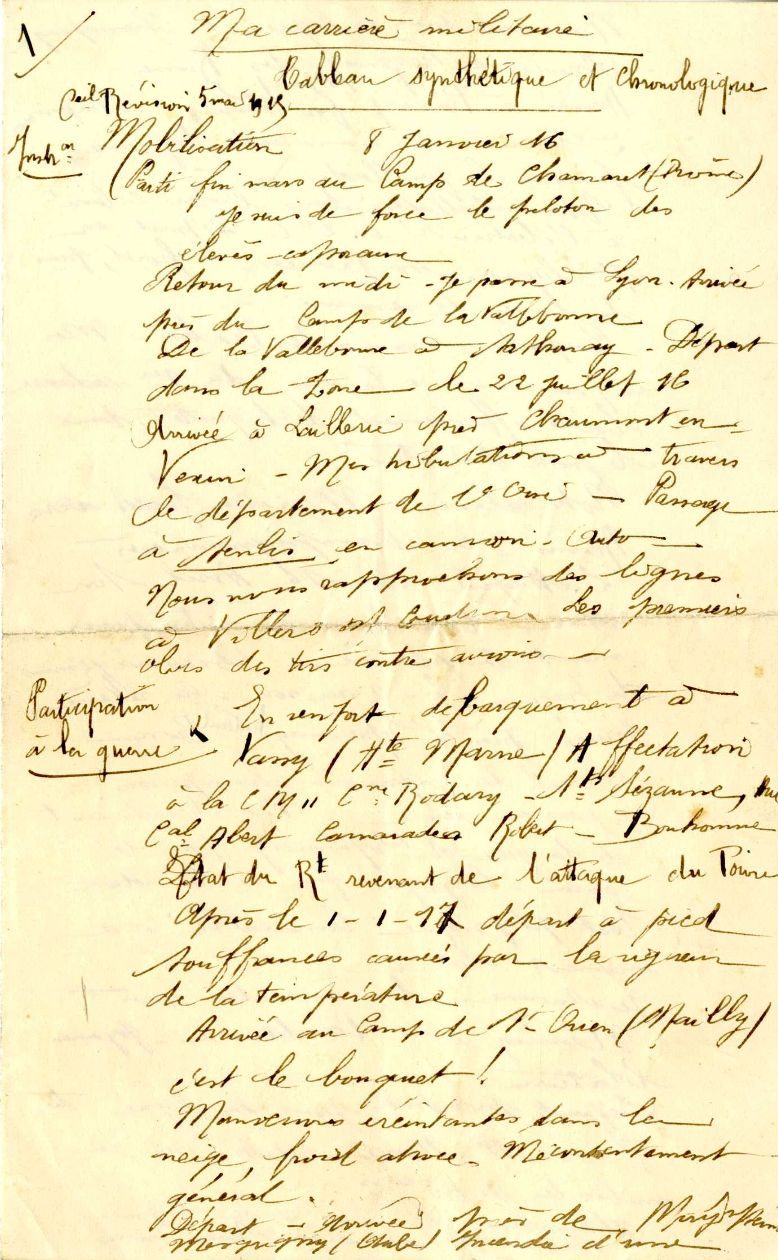 1/
Ma carrière militaire
Tableau synthétique et chronologique
Révision 5 mai 1915
Instr on
Mobilisation 8 Janvier 16
(Parti fin mars au Camp de Chamaret (Drôme)
Je suis de force le peloton des
élèves-caporaux
Retour du midi - Je passe à Lyon. Arrivée
près du Camp de la Valbonne
De la Valbonne à Anthonay - Départ
dans la Zone le 22 juillet 16
Arrivée à Laillerie près Chaumont en
Vexin - Mes tribulations à travers
le département de l'Oise - Passage
à Senlis en camion-auto
Nous nous rapprochons des lignes
à Villers Coudun. Les premiers
obus des tirs contre avions -
Participation
à la guerre
En renfort débarquement à
Vassy (Hte Marne) Affectation
à la CM Cne Rodary - Lt Sézanne,
Cal Abert Camarades Robert - Bonhomme
Etat du Rt revenant de l'attaque du Poivre
Après le 1-1-17 départ à pied
souffrances causées par la rigueur
de la température
Arrivée au Camp de St Ouen (Mailly)
c'est le bouquet!
Manoeuvres éreintantes dans la
neige, froid atroce - Mécontentement
général.
Départ - Arrivée près de
(Aube) Incendie d'une